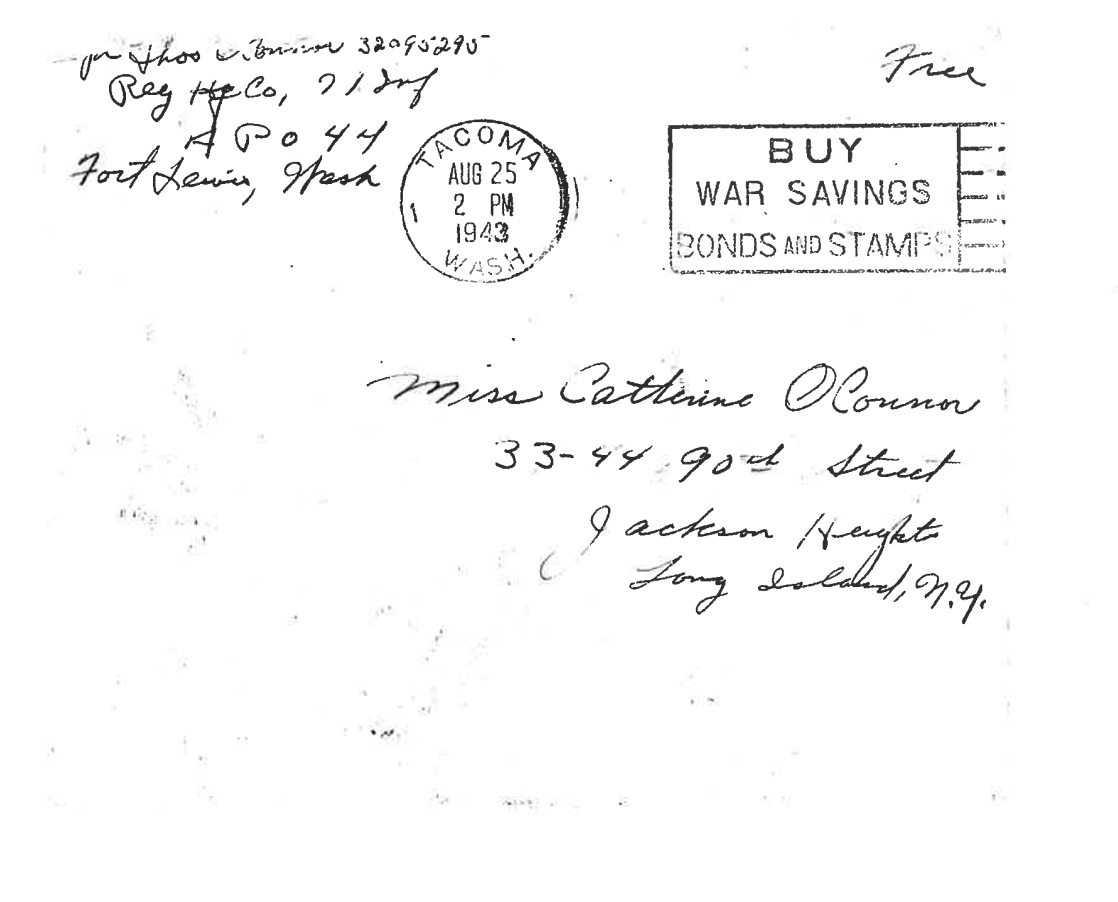 Thos 32095295
Reg Hq Co, 71 Inf
A P O 44
Fort Lewis, Wash
Free
TACOMA
AUG 25
2 PM
1943
WASH.
1
BUY
WAR SAVINGS
BONDS AND STAMPS
Miss Catherine O'Connor
33-44 90th Street
Jackson Heights
Long Island, N.Y.